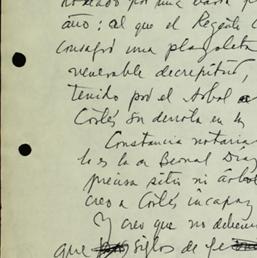 rodeado por una barda
año: al que el Regente
consagró una plazoleta
venerable decrepitud,
tenido por el Arbol
Cortés su derrota en la
Constancia notaria
la es la de Bernal Díaz
precisa sitio ni árbol
creo a Cortés incapaz
Y creo que no debemos
que siglos de fe